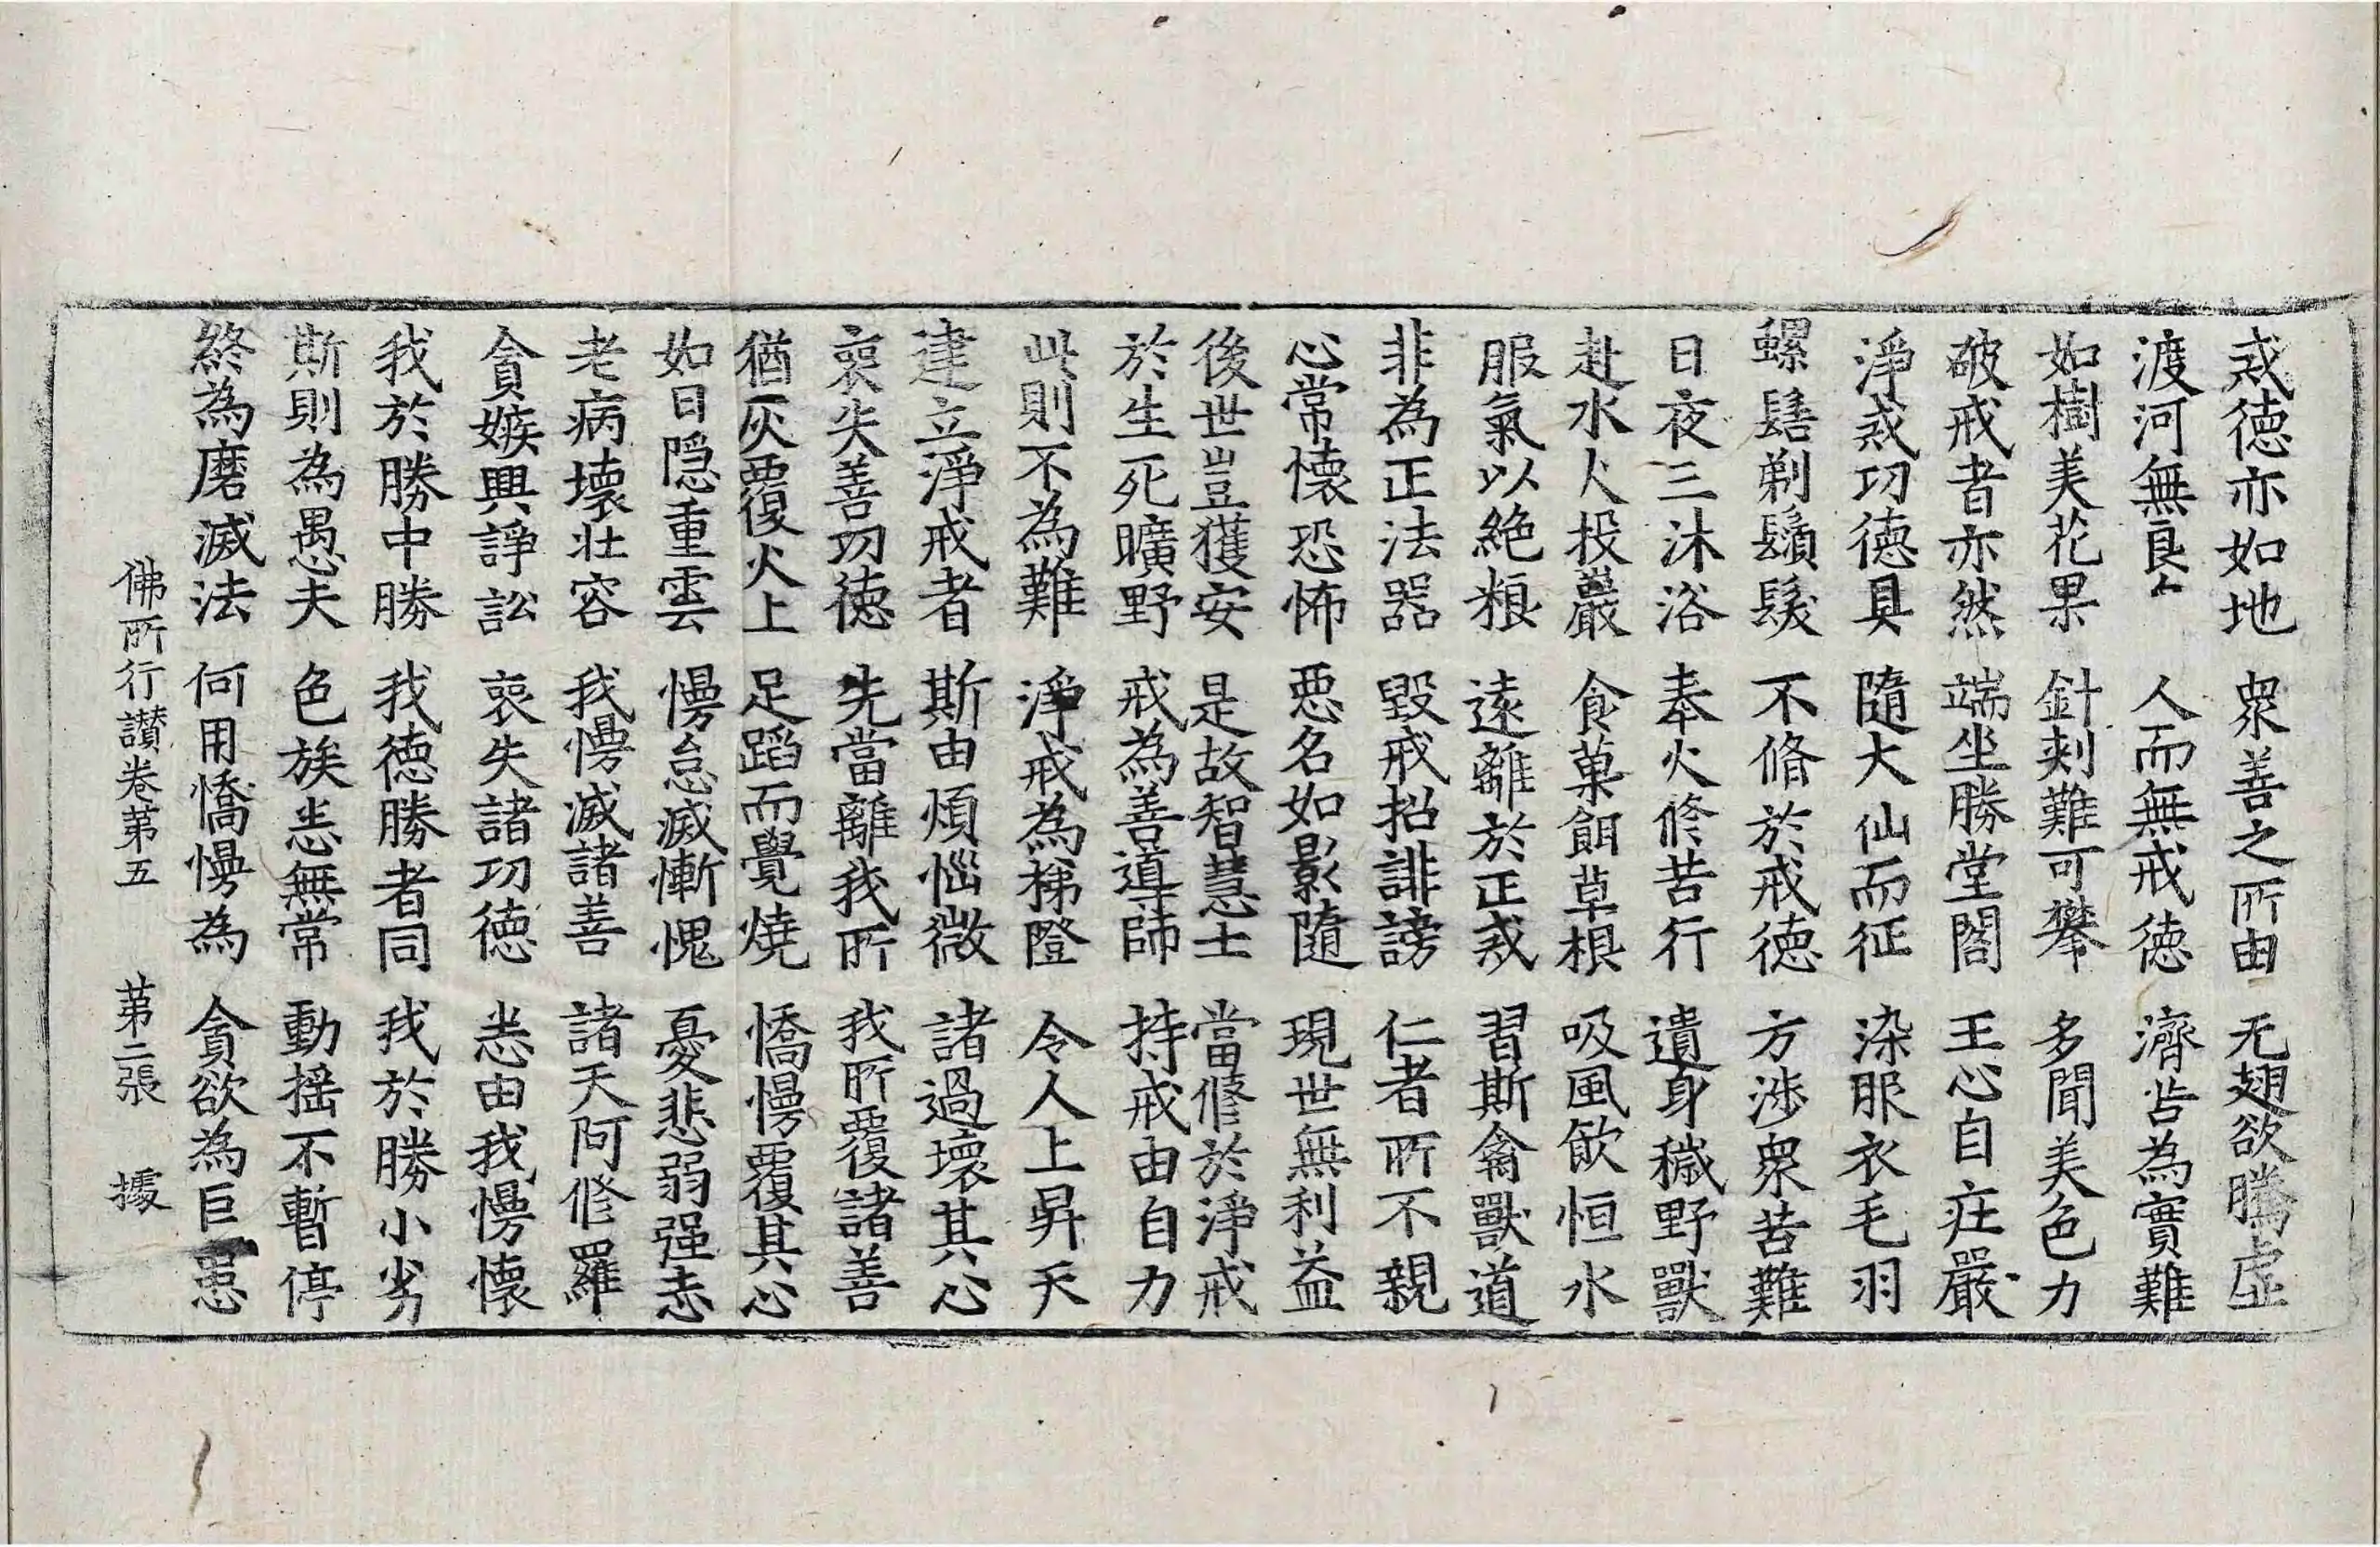 戒德亦如地 衆善之所由 无翅欲騰虛
渡河無良𠂉 人而無戒德 濟苦為實難
如樹美花果 針刺難可攀 多聞美色力
破戒者亦然 端坐勝堂閣 王心自疘嚴
淨戒功德具 隨大仙而征 染服衣毛羽
螺髻剃鬚髮 不脩於戒德 方涉衆苦難
日夜三沐浴 奉火修苦行 遺身穢野獸
赴水火投巖 食菓餌草根 吸風飲恒水
服氣以絶粮 遠離於正戒 習斯禽獸道
非為正法器 毀戒招誹謗 仁者所不親
心常懷恐怖 惡名如影隨 現世無利益
後世豈獲安 是故智慧士 當修於淨戒
於生死曠野 戒為善導師 持戒由自力
此則不為難 淨戒為梯隥 令人上昇天
建立淨戒者 斯由煩惱微 諸過壞其心
喪失善功德 先當離我所 我所覆諸善
猶灰覆火上 足蹈而覺燒 憍慢覆其心
如日隐重雲 慢怠滅慚愧 憂悲弱强志
老病壞壯容 我慢滅諸善 諸天阿修羅
貪嫉興諍訟 喪失諸功德 悉由我慢懷
我於勝中勝 我德勝者同 我於勝小劣
斯則為愚夫 色族悉無常 動揺不暫停
終為磨滅法 何用憍慢為 貪欲為巨患
佛所行讃卷苐五 苐二張 據